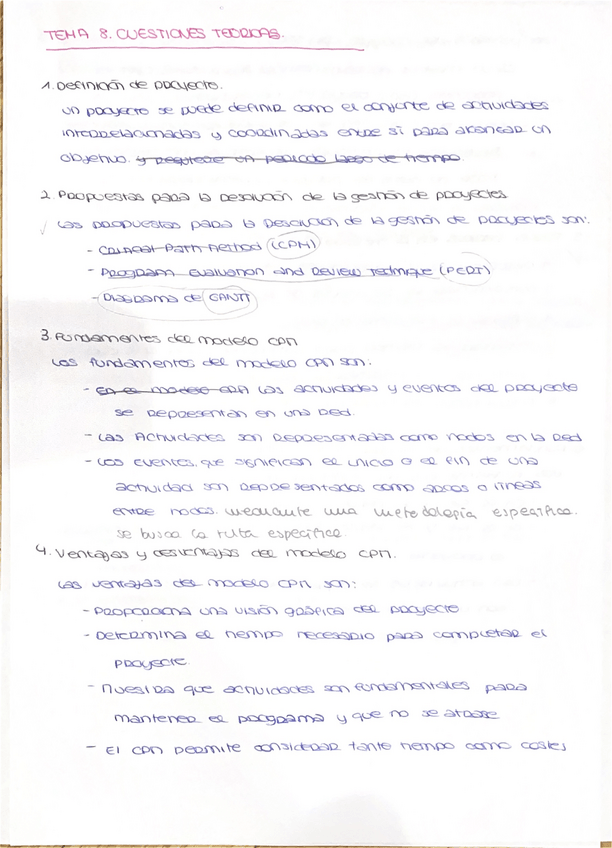 TEMA 8. CUESTIONES TEÓRICAS.
1. Definición de proyecto.
un proyecto se puede definir como el conjunto de actividades
interrelacionadas y coordinadas entre sí para alcanzar un
objetivo. y requiere un periodo largo de tiempo.
2. Propuestas para la resolución de la gestión de proyectos
Las propuestas para la resolución de la gestión de proyectos son:
- Critical Path Method (CPM)
- Program Evaluation and Review Technique (PERT)
- Diagrama de GANTT
3. Fundamentos del modelo CPM
Los fundamentos del modelo CPM son:
- En el modelo CPM Las actividades y eventos del proyecto
se representan en una red.
- Las Actividades son representadas como nodos en la red
- Los eventos, que significan el inicio o el fin de una
actividad son representados como arcos o líneas
entre nodos. mediante una metodología específica.
se busca la ruta específica.
4. Ventajas y desventajas del modelo CPM.
Las ventajas del modelo CPM son:
- Proporciona una visión gráfica del proyecto
- Determina el tiempo necesario para completar el
proyecto.
- Muestra que actividades son fundamentales para
mantener el programa y que no se atrase
- El CPM permite considerar tanto tiempo como costes